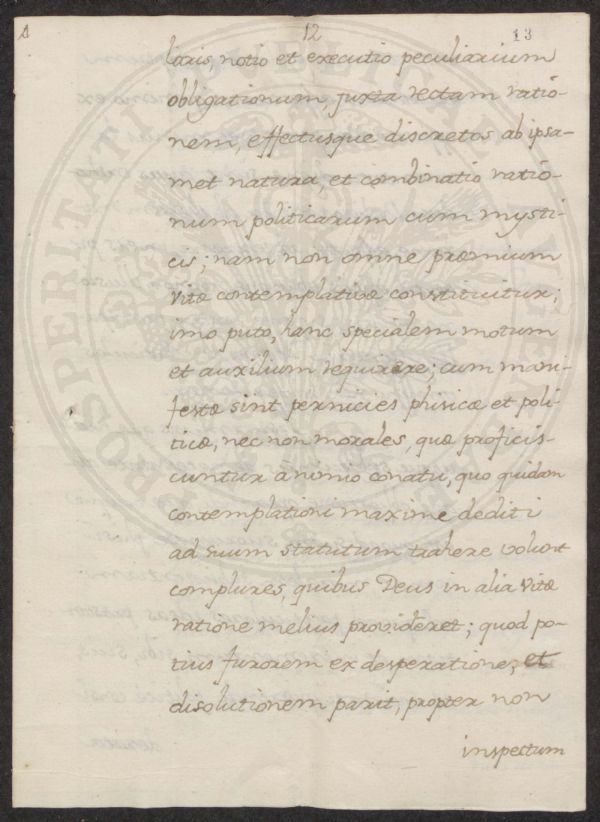 12
13
laris, notio et executio peculiarium
obligationum, juxta rectam ratio-
nem, effectusque discretos ab ipsa-
met natura, et combinatio ratio-
num politicarum cum mysti-
cis; nam non omne præmium
vitæ contemplativæ constituitur;
imo puto, hanc specialem motum
et auxilium requirere; cum mani-
festæ sint pernicies phisicæ et poli-
ticæ, nec non morales, quæ proficis-
cuntur à nimio conatu, quo quidam
contemplationi maxime dediti
ad suum statutum trahere volunt
complures, quibus Deus in alia vitæ
ratione melius provideret; quod po-
tius furorem ex desperatione, et
disolutionem parit, propter non
inspectum
PROSPERITATI PUBLICAE AUGEN